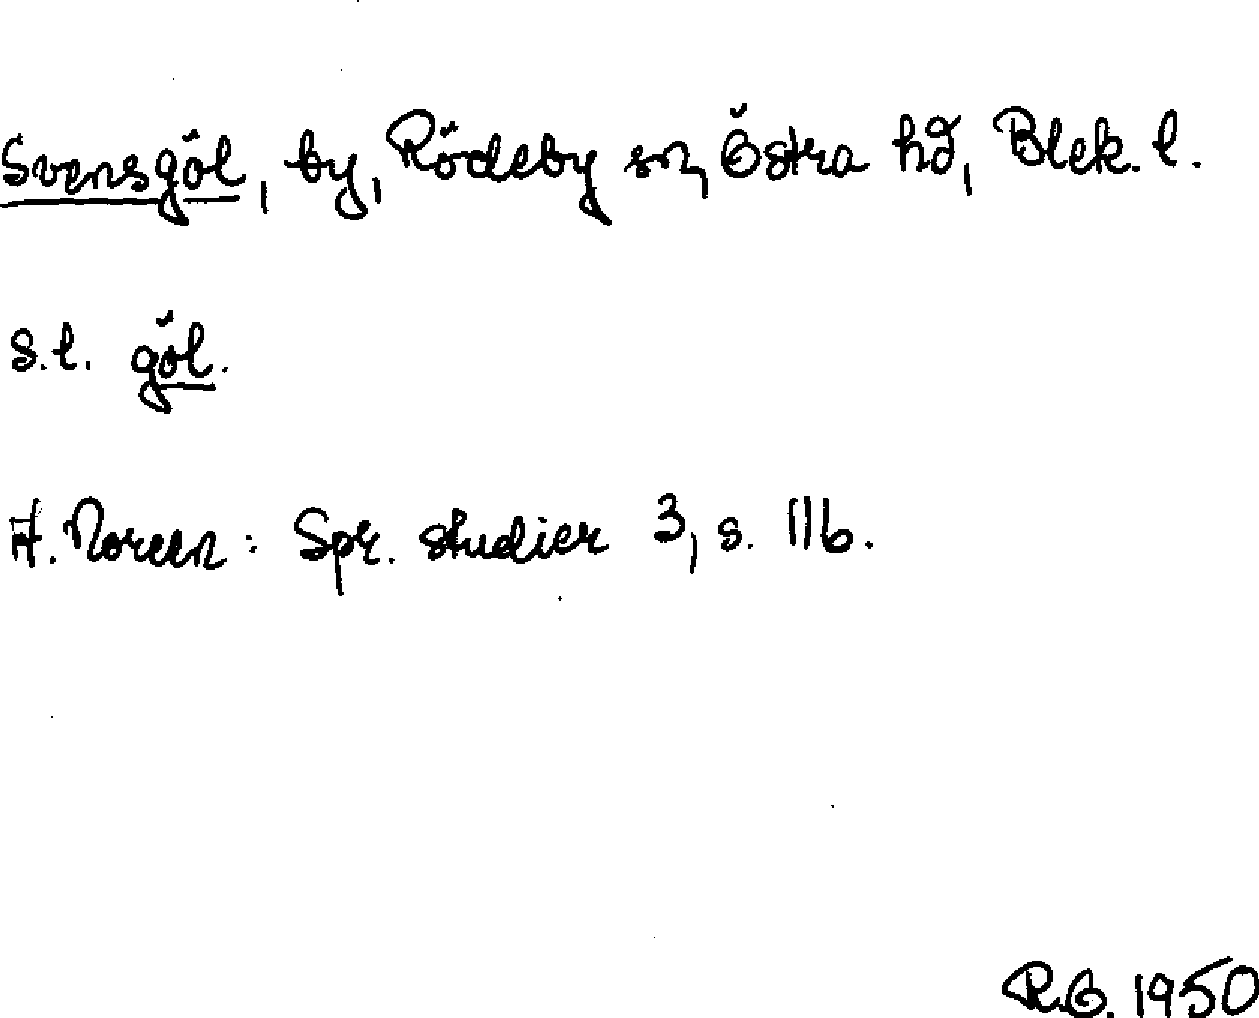 Svensgöl, by, Rödeby sn, Östra hd, Blek. l.
s.l. göl.
A. Noreen: Spr. studier 3, s. 116.
R.G. 1950